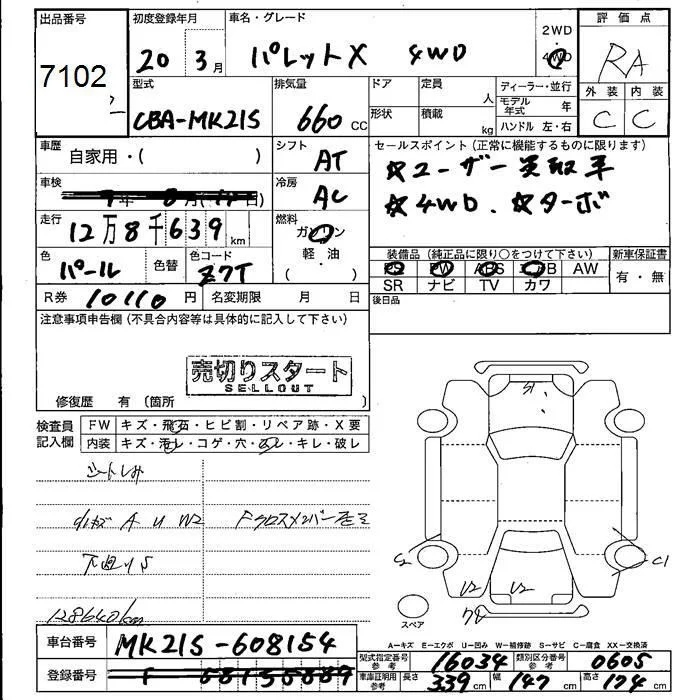 出品番号
7102
初度登録年月
20 3月
車名・グレード
パレットX 4WD
2WD
・
4WD
評価点
RA
外装 内装
C C
型式
CBA-MK21S
排気量
660 CC
ドア
形状
定員
人
積載
kg
ディーラー・並行
モデル年式 年
ハンドル 左・右
車歴
自家用・( )
シフト
AT
セールスポイント(正常に機能するものに限ります)
☆ユーザー買取車
☆4WD. ☆ターボ
車検
冷房
AC
走行
12万8千639km
燃料
ガソリン
軽・油
( )
色
パール
色替
色コード
Z7T
装備品(純正品に限り○をつけて下さい)
PS PW ABS エアB AW
SR ナビ TV カワ
新車保証書
有・無
R券 10110円
名変期限 月 日
後日品
注意事項申告欄(不具合内容等は具体的に記入して下さい)
売切りスタート
SELLOUT
修復歴 有(箇所 )
検査員記入欄
FW キズ・飛石・ヒビ割・リペア跡・X要
内装 キズ・汚レ・コゲ・穴・スレ・キレ・破レ
シートしみ
A U W2
Fクロスメンバー
下廻りS
128640km
S1
C2
C1
U2
U2
スペア
A=キズ E=エクボ U=凹み W=補修跡 S=サビ C=腐食 XX=交換済
車台番号
MK21S-608154
登録番号
型式指定番号 参考
16034
類別区分番号 参考
0605
車庫証明用 参考
長さ 339cm
幅 147cm
高さ 174cm